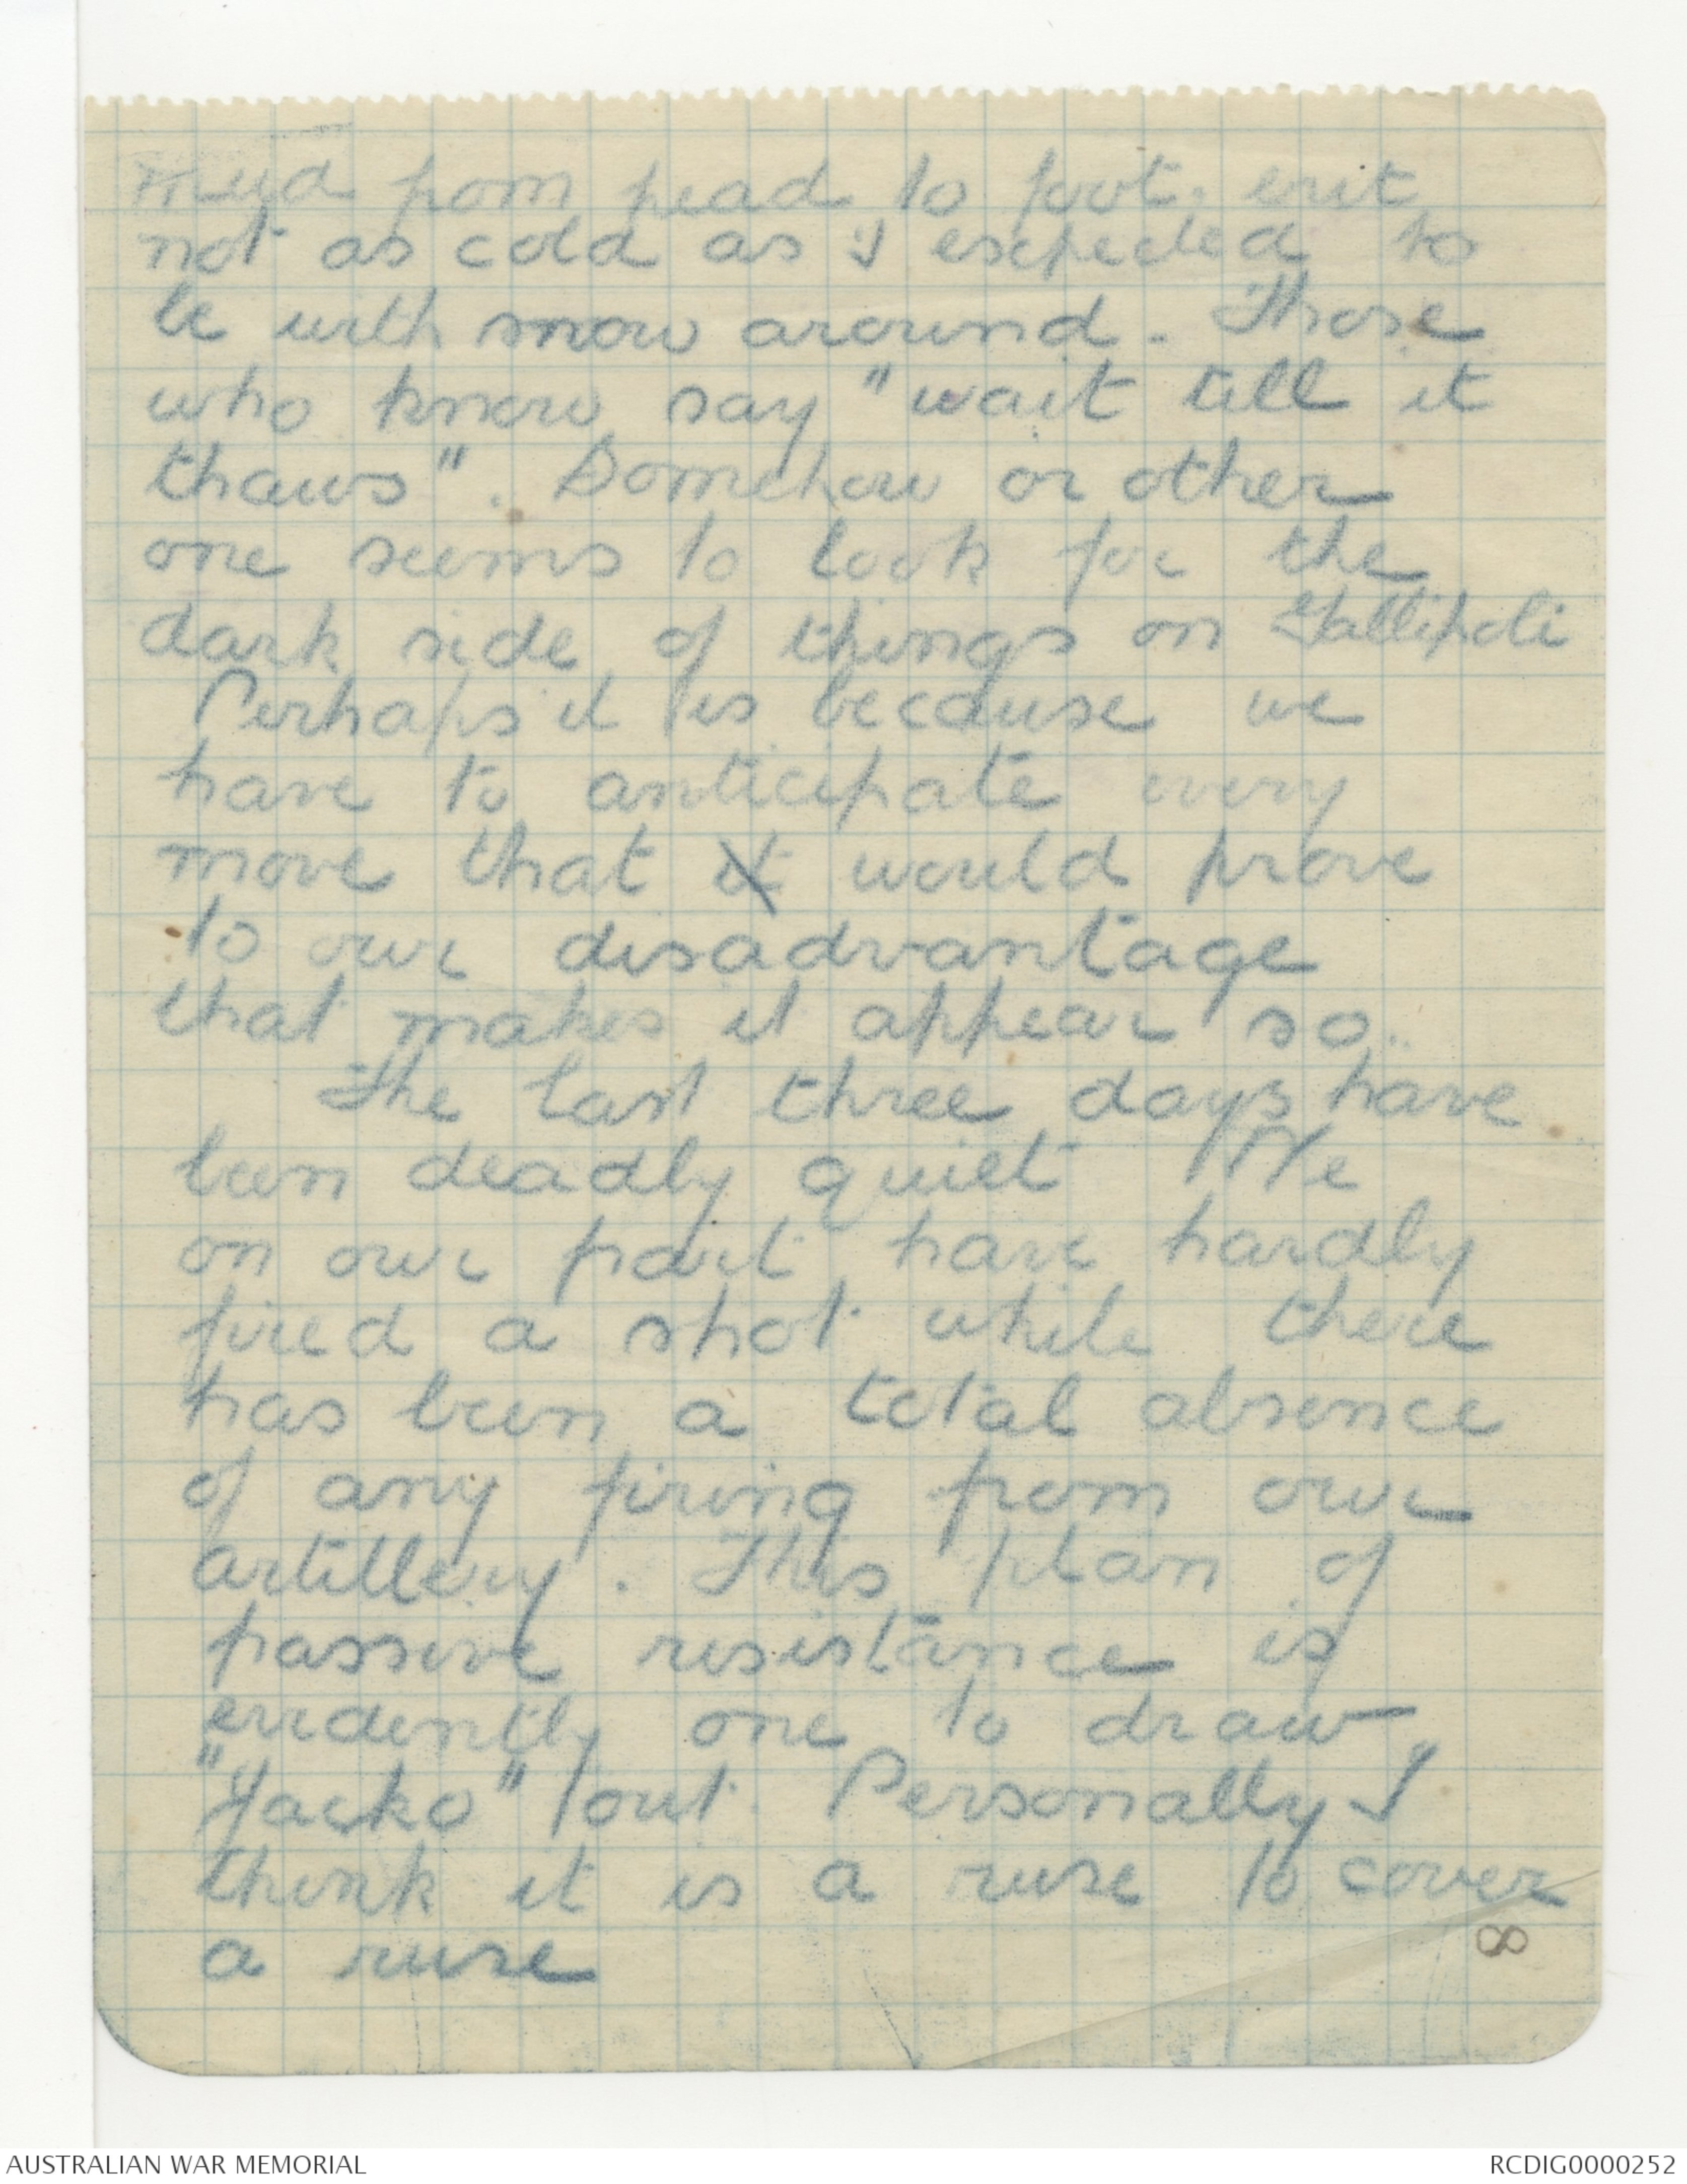 mud from head to foot. but
not as cold as I expected to
be with snow around. Those
who know say "wait till it
thaws". Somehow or other
one seems to look for the
dark side of things on Gallipoli
Perhaps it is because we
have to anticipate every
move that it would prove
to our disadvantage
that makes it appear so.
The last three days have
been deadly quiet We
on our part have hardly
fired a shot while there
has been a total absence
of any firing from our
artillery. This plan of
passive resistance is
evidently one to draw
"Jacko" out. Personally I
think it is a ruse to cover
a ruse
8
AUSTRALIAN WAR MEMORIAL
RCDIG0000252